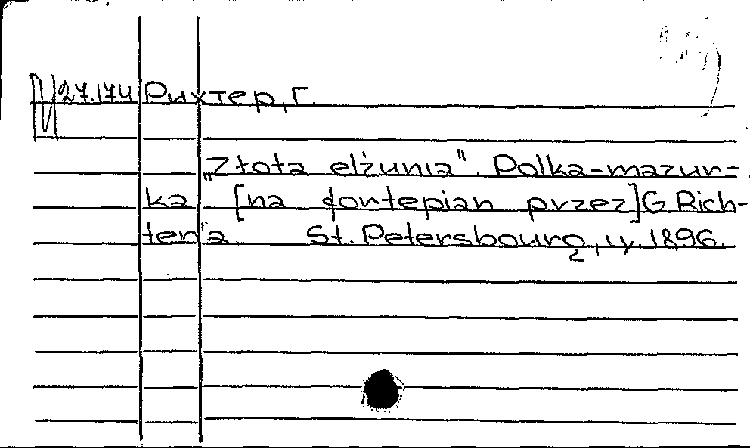 27.174 Рихтер, Г.
„Złota elżunia". Polka-mazur-
ka [na fortepian przez] G. Rich-
ter'a St. Petersbourg, 1896.